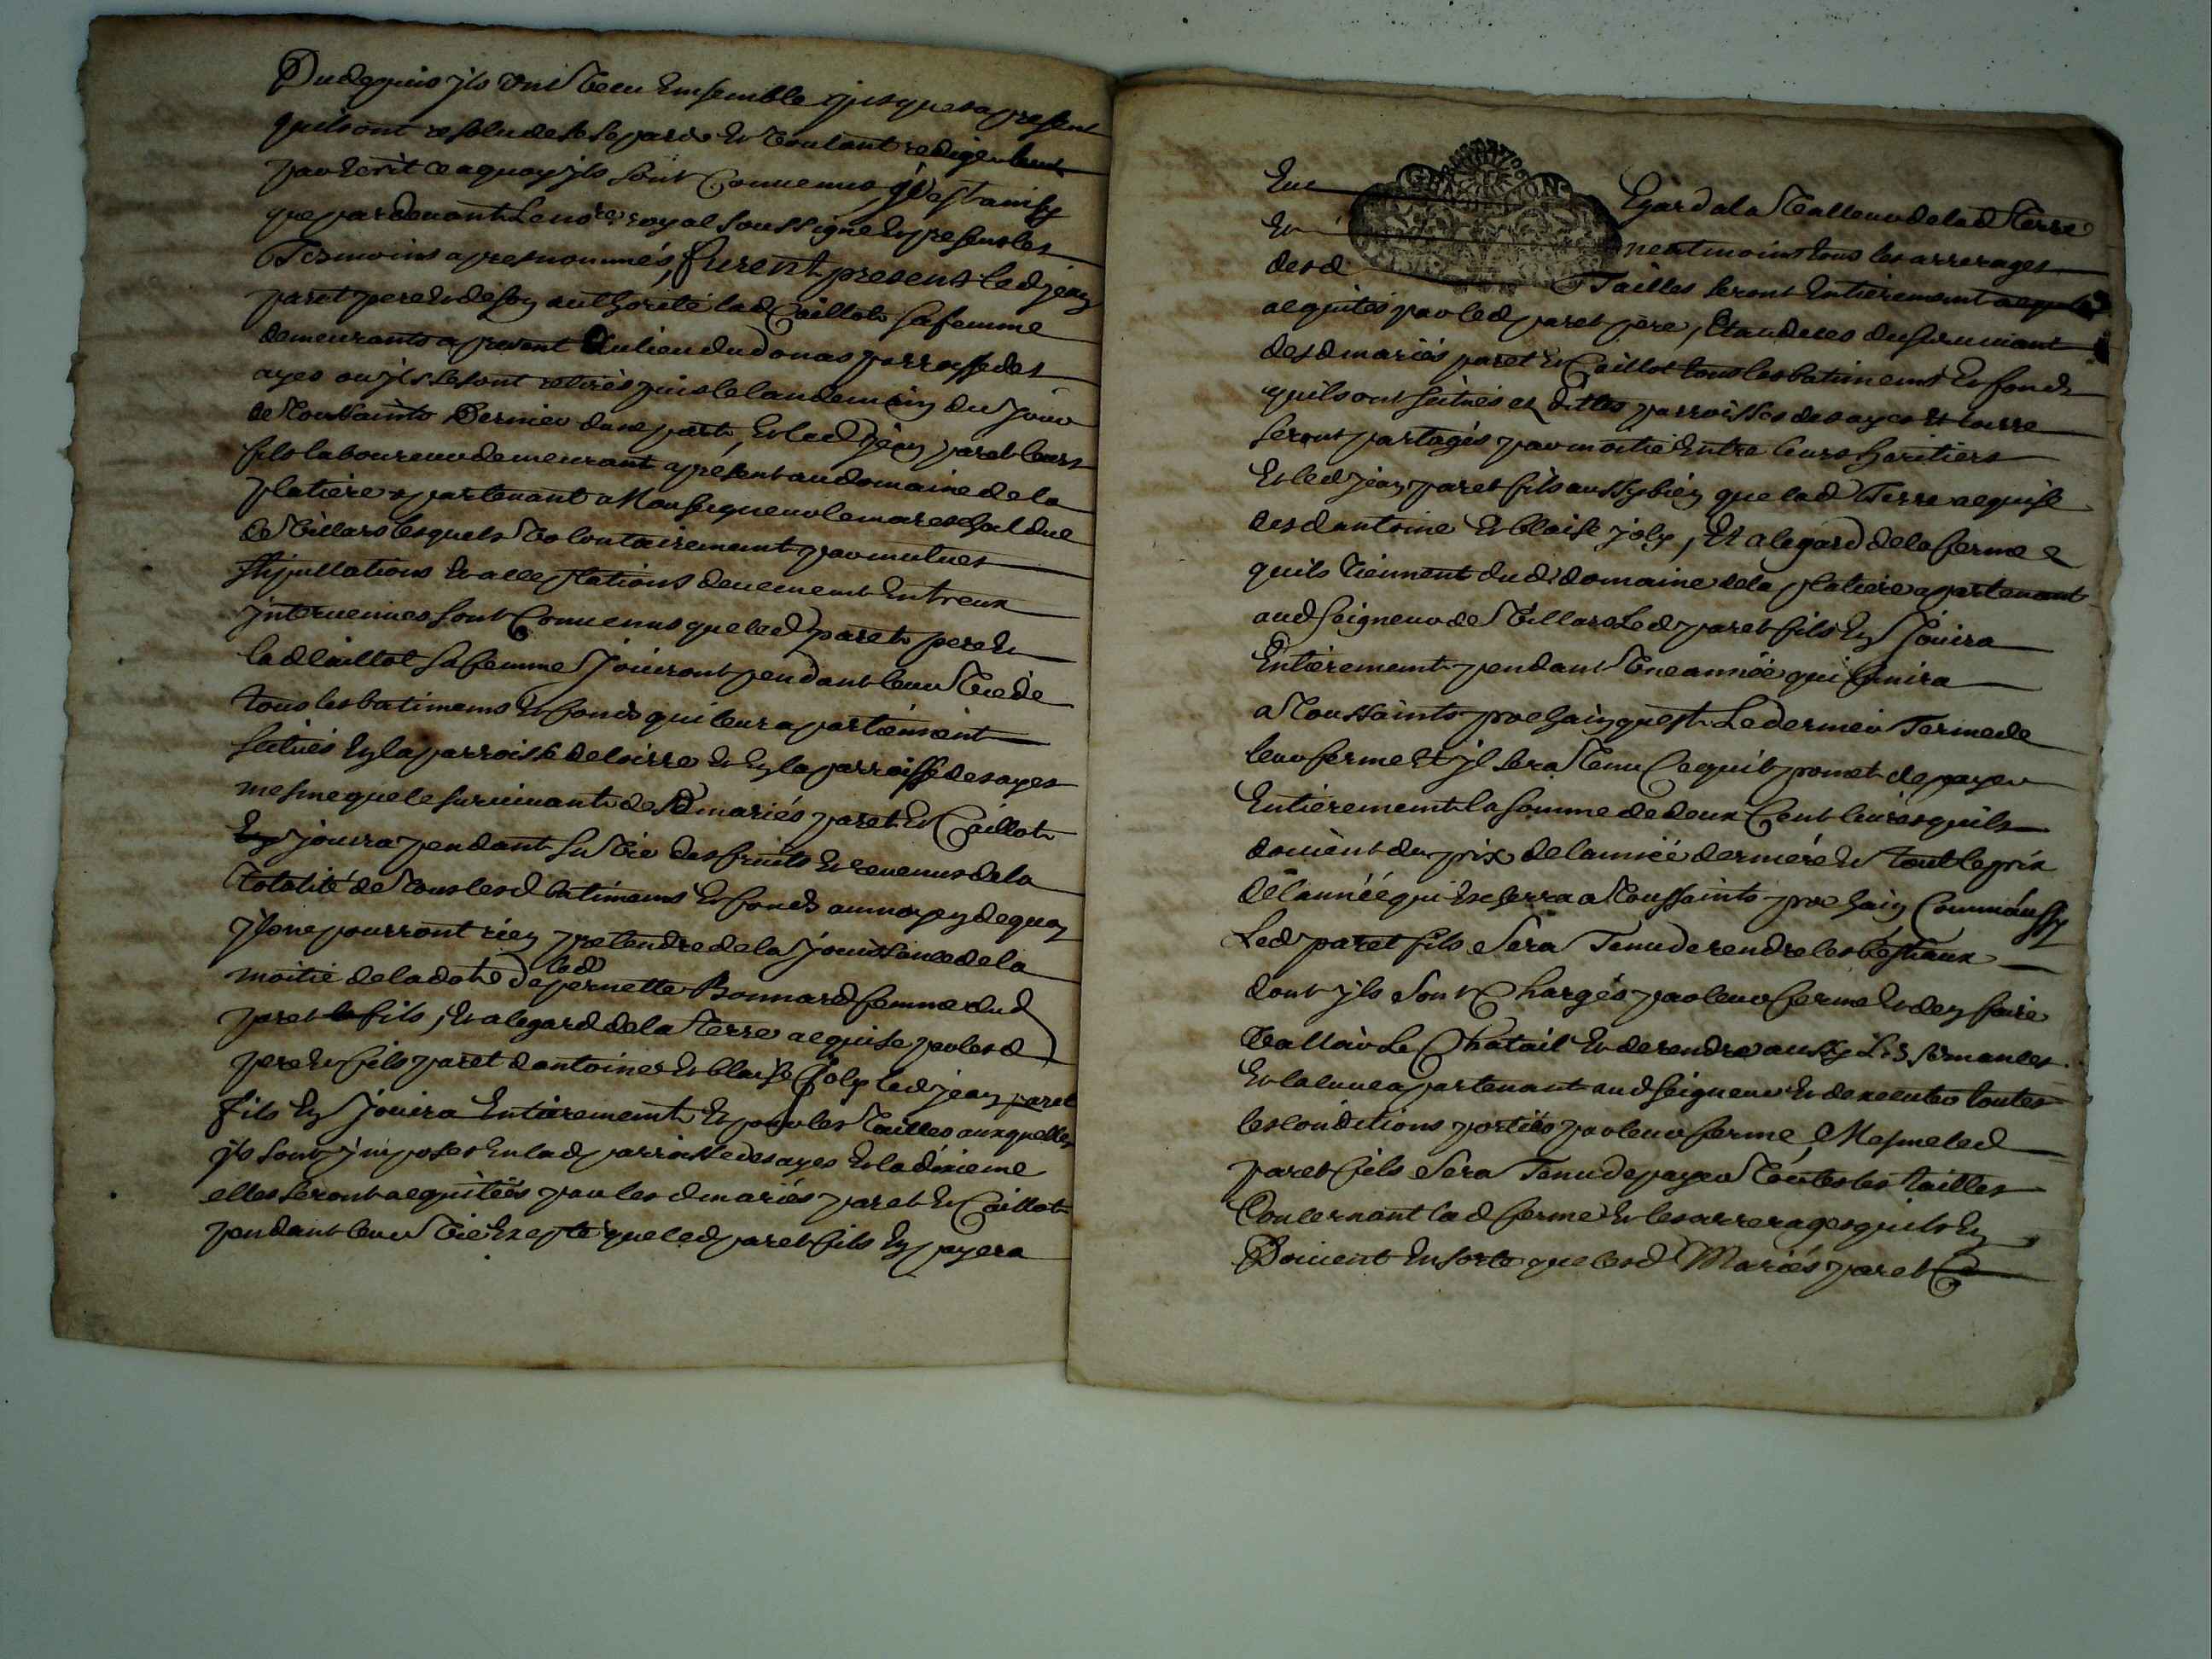 Dudepuis jls ont vecu Ensemble jusques apresent
quils ont resolu de se separer Et voulant rediger
par Ecrit ce a quoy jls sont Convenus, C'est ainsy
que pardevant Le no.re royal soussigné Et presens les
Tesmoins apres nommés, furent presens led jean
paret pere Et de son authorité lad Caillot sa femme
demeurants a present au lieu du donas parroisse des
ayes ou jls se sont retirés puis le landemain du jour
de Toussaints Dernier dune part, Et led jean paret leurs
fils laboureur demeurant apresent au domaine de la
platiere apartenant a Monseigneur le mareschal duc
de Villars lesquels volontairement par mutues
stipullations Et acceptations deuement Entreux
jntervenues sont Convenus que led paret pere Et
lad Caillot sa femme Jouiront pendant leur vie de
tous les batimens Et fonds qui leur apartienent
scitués En la parroisse de loirre Et En la parroisse des ayes
mesme que le survivant desd mariés paret Et Caillot
En jouira pendant sa vie des fruits Et revenus de la
totalité de tous lesd batimens Et fonds au moyen de quoy
jls ne pourront rien pretendre de la Jouissance de la
moitie de la dote de lad pernette Bonnard femme dud
paret fils, Et alegard de la Terre acquise par lesd
pere Et fils paret dantoine Et blaise joly led jean paret
fils En Jouira Entierement Et pour les Tailles auxquelles
jls sont jmposes En lad parroisse des ayes Et la dixieme
elles seront acquitées par les d mariés paret Et Caillot
pendant leur vie Excepté que led paret fils En payera
Eue Egard a la valleur de lad Terre
Et neantmoins tous les arrerages
desd Tailles seront Entierement acquités
acquités par led paret pere, Et au deces du survivant
desd mariés paret Et Caillot tous les batimens Et fonds
quils ont scitués es dittes parroisses des ayes Et loirre
seront partagés par moitié Entre leurs heritiers
Et led jean paret fils aussy bien que lad Terre acquise
desd antoine Et blaise joly, Et alegard de la ferme
quils tiennent dud domaine de la platiere apartenant
aud seigneur de Villars led paret fils En Jouira
Entierement pendant Une année qui finira
a Toussaints prochain quest Le dernier Terme de
leur ferme Et jl sera Tenu Ce quil promet de payer
Entierement la somme de deux Cent livres quils
doivent du prix de lannée derniere Et tout le prix
de lannée qui Escherra a Toussaints prochain Comme aussy
Led paret fils sera Tenu de rendre les bestiaux
dont jls sont Chargés par leur ferme Et den faire
valloir Le Chatail Et de rendre aussy les semances
Et apartenant aud seigneur Et dexecuter toutes
les Conditions portées par leur ferme, Mesme led
paret fils sera Tenu de payer Toutes les tailles
Concernant lad ferme Et les arrerages quils En
Doivent En sorte que lesd Mariés paret Et